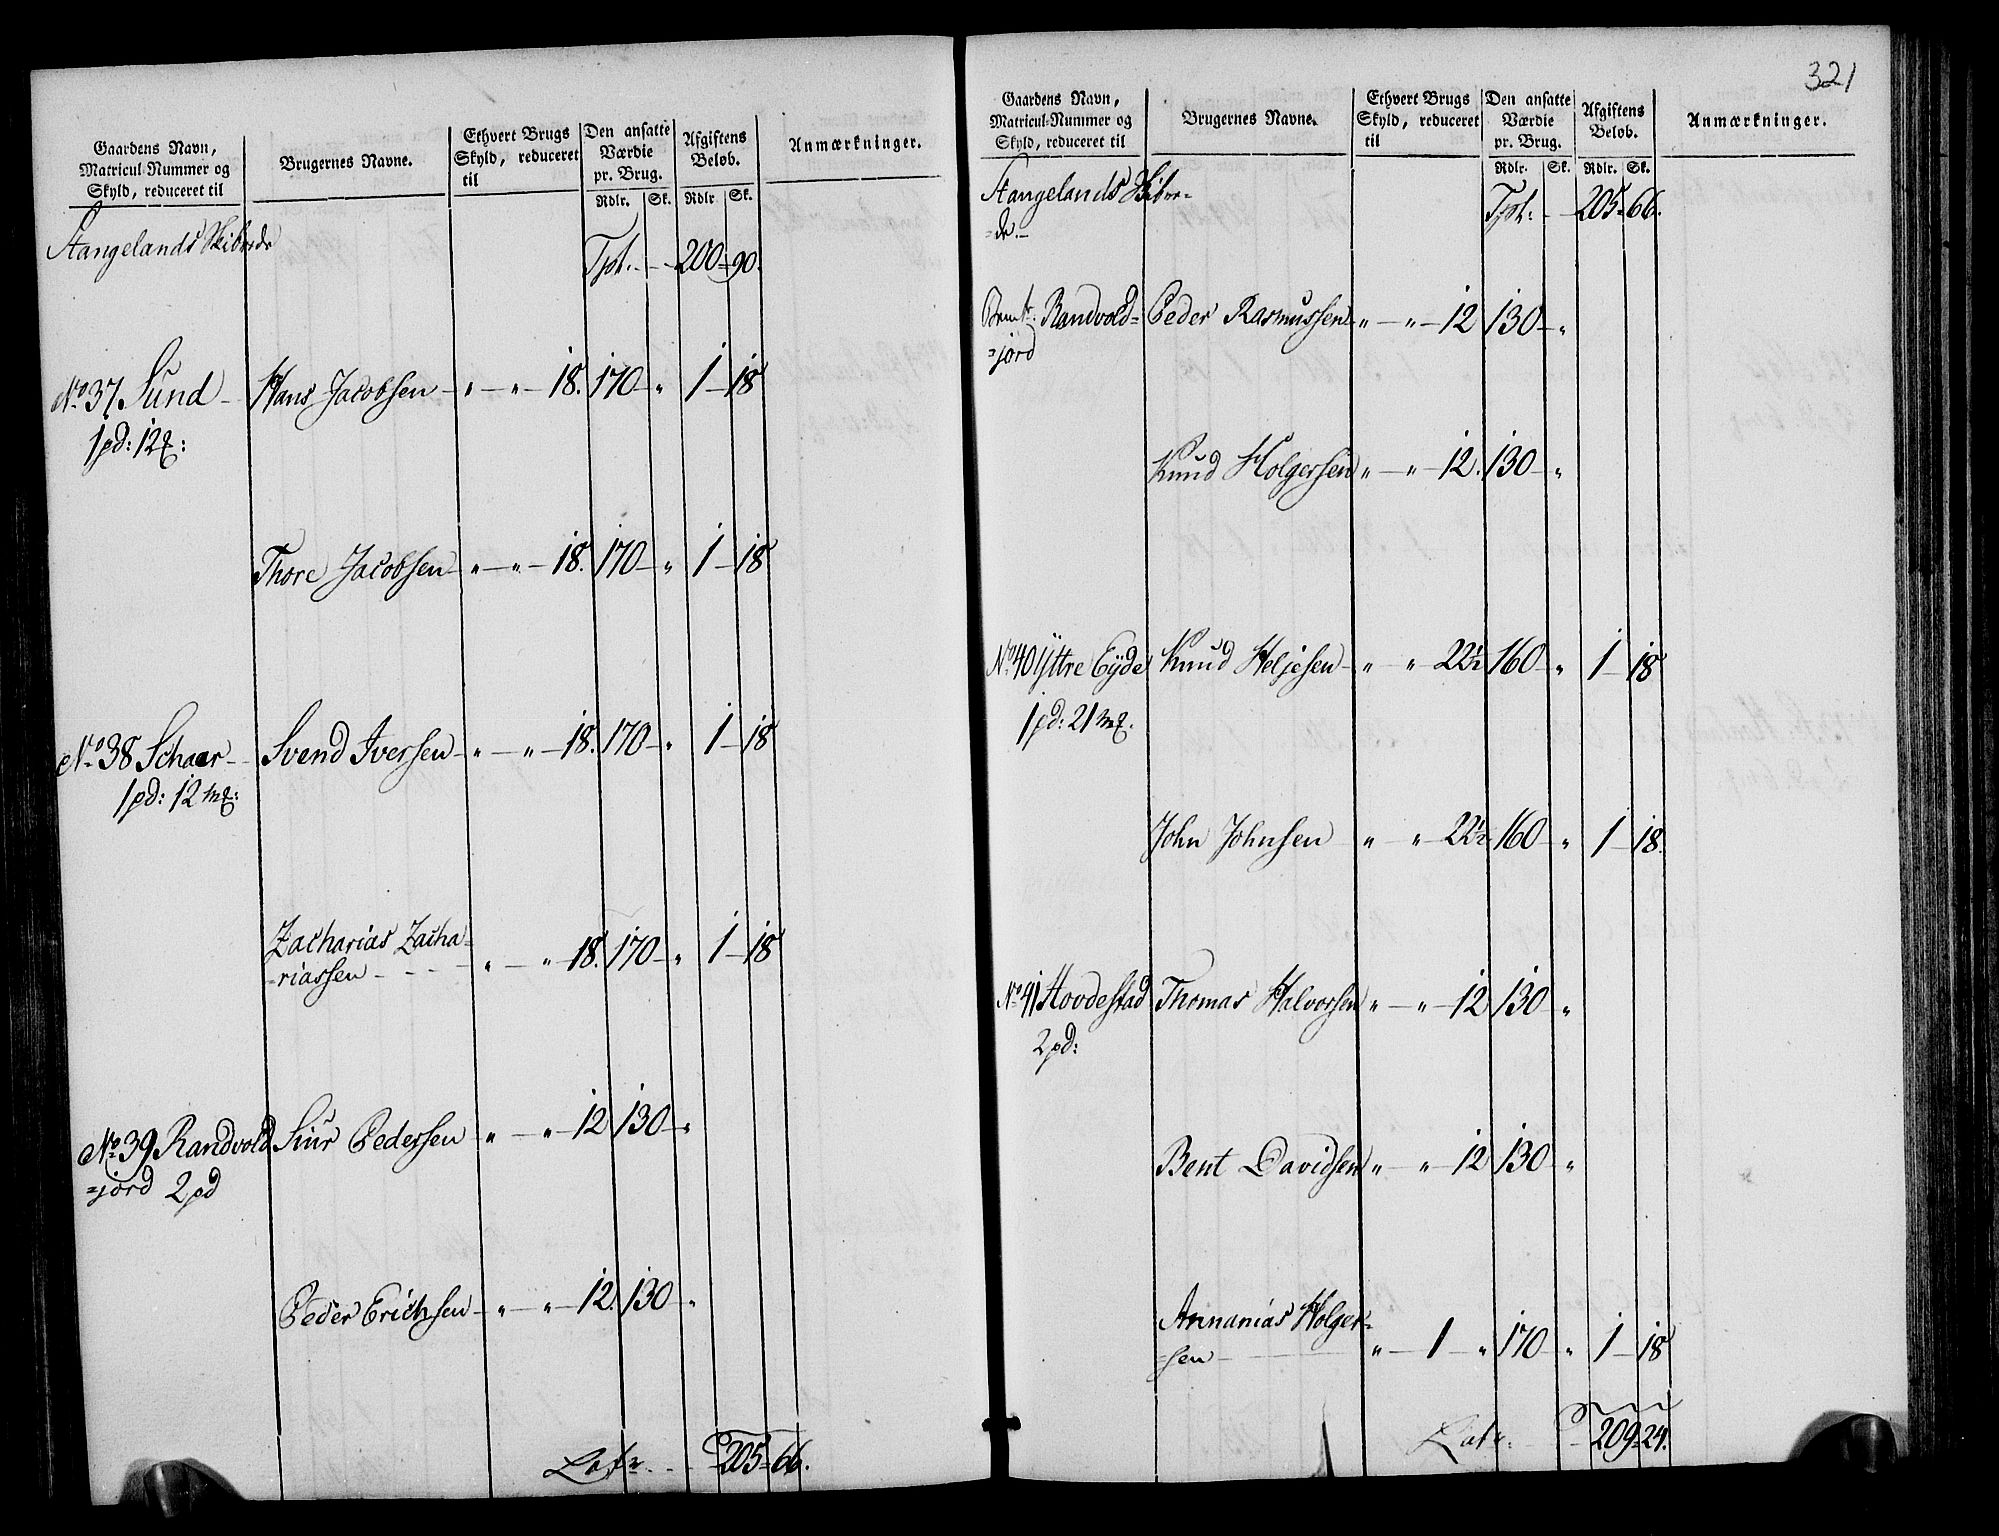 Gaardens Navn, Matricul-Nummer og Skyld, reduceret til | Brugernes Navne. | Ethvert Brugs Skyld, reduceret til | Den ansatte Værdie pr. Brug. Rdlr. Sk. | Afgiftens Beløb. Rdlr Sk. | Anmærkninger.
Stangelands Skibrede
Tpt. - - 200 = 90.
No 37 Sund - Hans Jacobsen - „ - „ - 18. 170 - „ 1 - 18
1 pd: 12 :
Thore Jacobsen - „ - „ - 18. 170 - „ 1 - 18
No 38 Schaar - Svend Iversen - „ - „ - 18. 170 - „ 1 - 18
1 pd: 12 m:
Zacharias Zacha=
=riassen - - - - „ - „ 18. 170 - „ 1 - 18
No 39 Randvold Siur Pedersen „ - „ - 12 130 - „
=jord 2 pd
Peder Erichsen - „ - „ - 12. 130 - „
Latr. - - 205 = 66.
321
Gaardens Navn, Matricul-Nummer og Skyld, reduceret til | Brugernes Navne. | Ethvert Brugs Skyld, reduceret til | Den ansatte Værdie pr. Brug. Rdlr. Sk. | Afgiftens Beløb. Rdlr. Sk. | Anmærkninger.
Stangelands Skibre-
=de.-
Tpt. - - 205 = 66.
Randvold= Peder Rasmussen „ - „ - 12 130 - „
=jord
Knud Holgersen „ - „ - 12. 130 - „
No 40 Ytre Eyde Knud Heljesen - „ „ 22½ 160 - „ 1 - 18
1 pd: 21 m.
John Johnsen - „ „ - 22½ - 160 - „ 1 - 18.
No 41 Hovdestad Thomas Halvorsen „ - „ - 12 130 - „
2 pd:
Bent Davidsen „ - „ - 12 130 - „
Annanias Holger=
=sen - „ - 1 „ 170 - „ 1 - 18
Latr. - 209 = 24.